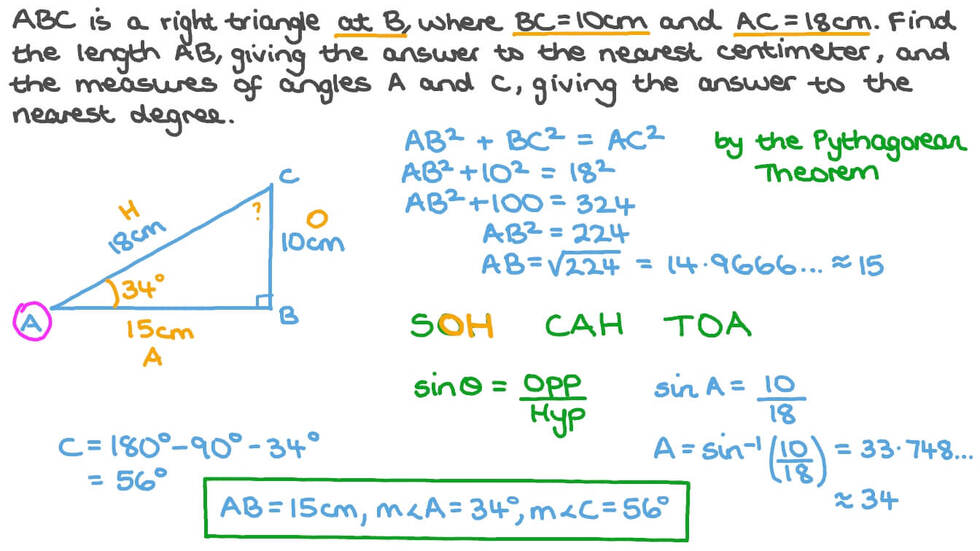 ABC is a right triangle at B, where BC=10cm and AC=18cm. Find
the length AB, giving the answer to the nearest centimeter, and
the measures of angles A and C, giving the answer to the
nearest degree.
AB² + BC² = AC²
by the Pythagorean
Theorem
AB²+10² = 18²
AB²+100 = 324
AB² = 224
AB=√224 = 14.9666... ≈ 15
C
?
H
18cm
O
10cm
34°
A
B
15cm
A
SOH CAH TOA
sinθ = Opp/Hyp
sin A = 10/18
A = sin⁻¹(10/18) = 33.748...
≈ 34
C = 180°-90°-34°
= 56°
AB=15cm, m∠A=34°, m∠C=56°